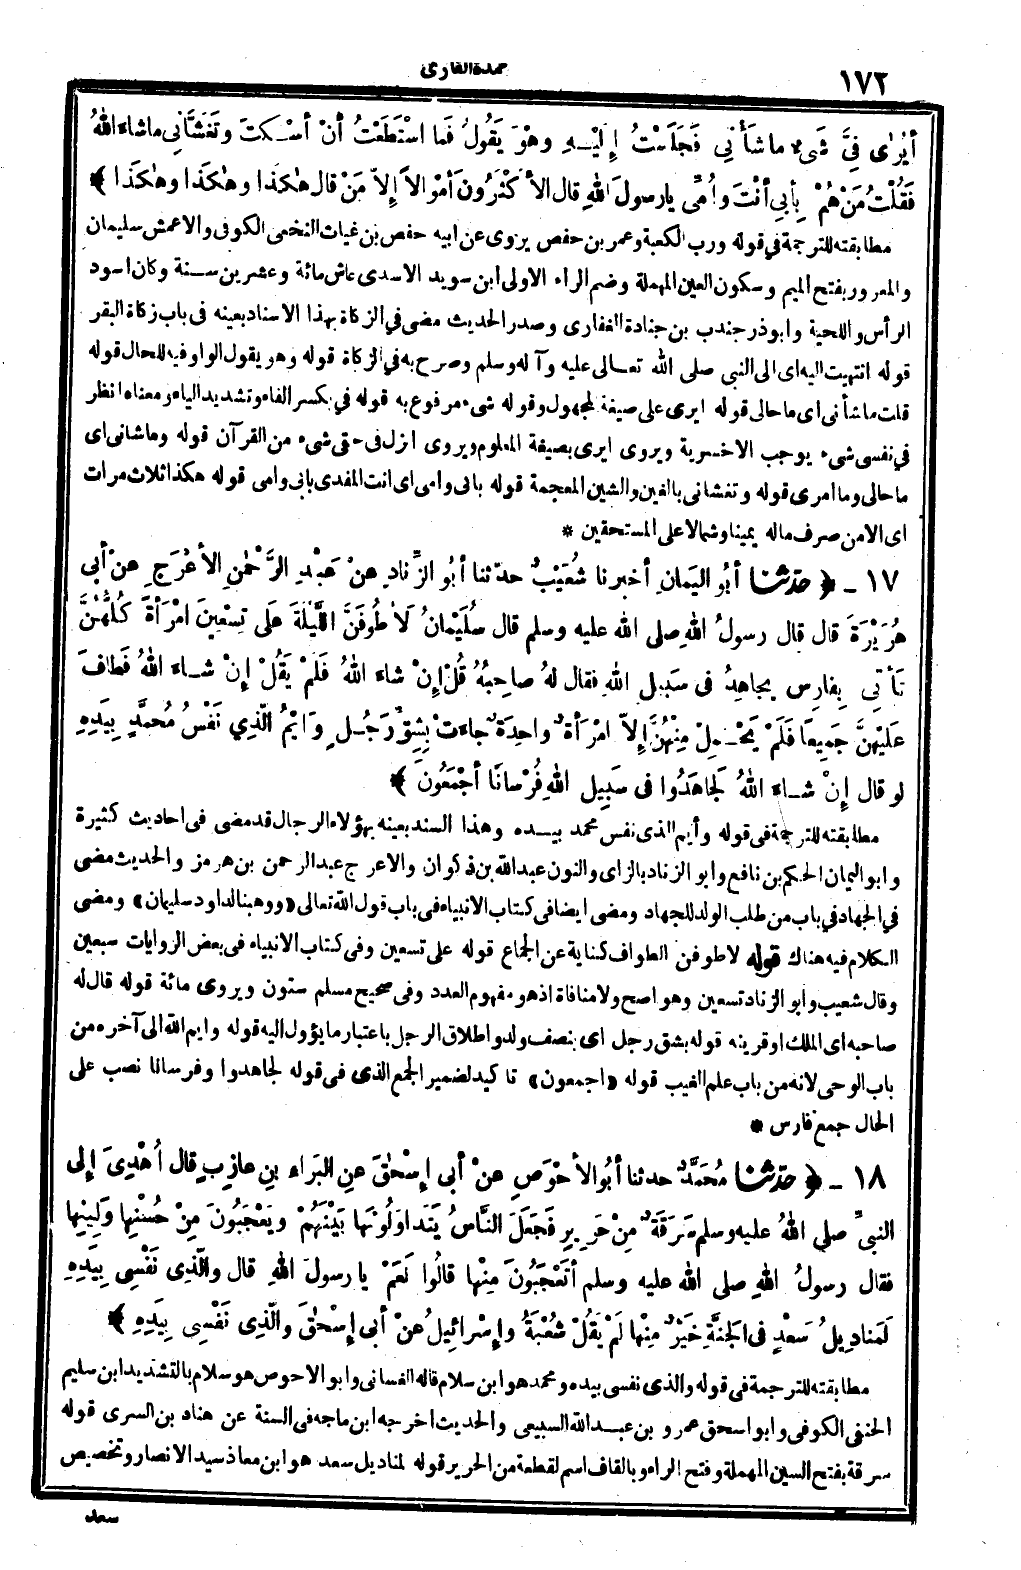 ١٧٢
عمدة القارئ
أَيُرٰى فِيَّ شَيْءٌ ما شَأْنِي فَجَلَسْتُ إِلَيْهِ وهْوَ يَقُولُ فَما اسْتَطَعْتُ أنْ أسْكتَ وتَغَشَّانِي ماشاءَ اللهُ
فَقُلْتُ مَنْ هُمْ بِأبِي أنْتَ وأُمِّي يا رسولَ اللهِ قال الأكْثَرُونَ أمْوالاً إلاّ مَنْ قال هٰكَذا وهٰكَذا وهٰكَذا ﴾
مطابقته للترجمة في قوله ورب الكعبة وعمر بن حفص يروى عن ابيه حفص بن غياث النخعى الكوفى والاعمش سليمان
والمعرور بفتح الميم وسكون العين المهملة وضم الراء الاولى ابن سويد الاسدى عاش مائة وعشرين سنة وكان اسود
الرأس واللحية وابوذر جندب بن جنادة الغفارى وصدر الحديث مضى في الزكاة بهذا الاسناد بعينه فى باب زكاة البقر
قوله انتهيت اليه اى الى النبى صلى الله تعالى عليه وآله وسلم وصرح به في الزكاة قوله وهو يقول الواو فيه للحال قوله
قلت ما شأنى اى ما حالى قوله ايرى على صيغة المجهول وقوله شىء مرفوع به قوله في بكسر الفاء وتشديد الياء ومعناه انظر
في نفسى شىء يوجب الاخسرية ويروى ايرى بصيغة المعلوم ويروى انزل فى حقى شىء من القرآن قوله وما شانى اى
ما حالى وما امرى قوله وتغشانى بالغين والشين المعجمة قوله بابى وامى اى انت المفدى بابى وامى قوله هكذا ثلاث مرات
اى الا من صرف ماله يمينا وشمالا على المستحقين *
١٧ ـ ﴿ حدّثنا أبُو اليَمانِ أخبرنا شُعَيْبٌ حدّثنا أبُو الزِّنادِ عنْ عَبْدِ الرَّحْمٰنِ الأعْرَجِ عنْ أبى
هُرَيْرَةَ قال قال رسولُ اللهِ صلى الله عليه وسلم قال سُلَيْمانُ لَأَطُوفَنَّ اللَّيْلَةَ عَلَى تِسْعِينَ امْرَأةً كُلُّهُنَّ
تَأتِي بِفارِسٍ يجاهِدُ فى سَبيلِ اللهِ فقال لهُ صاحِبُهُ قُلْ إنْ شاءَ اللهُ فَلَمْ يَقُلْ إنْ شاءَ اللهُ فَطافَ
عَلَيْهِنَّ جَمِيعاً فَلَمْ يَحْمِلْ مِنْهُنَّ إلاّ امْرَأةٌ واحِدَةٌ جاءَتْ بِشِقِّ رَجُلٍ وَايْمُ الَّذِي نَفْسُ مُحمَّدٍ بِيَدِهِ
لو قال إنْ شاءَ اللهُ لَجاهَدُوا فى سَبِيلِ اللهِ فُرْسانًا أجْمَعُونَ ﴾
مطابقته للترجمة فى قوله وأيم الذى نفس محمد بيده وهذا السند بعينه بهؤلاء الرجال قد مضى فى احاديث كثيرة
وابو اليمان الحكم بن نافع وابو الزناد بالزاى والنون عبد الله بن ذكوان والاعرج عبد الرحمن بن هرمز والحديث مضى
في الجهاد في باب من طلب الولد للجهاد ومضى ايضا فى كتاب الانبياء فى باب قول الله تعالى «ووهبنا لداود سليمان» ومضى
الكلام فيه هناك قوله لاطوفن الطواف كناية عن الجماع قوله على تسعين وفى كتاب الانبياء فى بعض الروايات سبعين
وقال شعيب وأبو الزناد تسعين وهو اصح ولا منافاة اذ هو مفهوم العدد وفى صحيح مسلم ستون ويروى مائة قوله قال له
صاحبه اى الملك او قرينه قوله بشق رجل اى بنصف ولد واطلاق الرجل باعتبار ما يؤول اليه قوله وايم الله الى آخره من
باب الوحى لانه من باب علم الغيب قوله «اجمعون» تاكيد لضمير الجمع الذى فى قوله لجاهدوا وفرسانا نصب على
الحال جمع فارس *
١٨ ـ ﴿ حدّثنا مُحَمَّدٌ حدثنا أبُو الأحْوَصِ عنْ أبى إسْحٰقَ عنِ البَراءِ بنِ عازِبٍ قال أُهْدِىَ إلى
النبىِّ صلى اللهُ عليه وسلم سَرَقَةٌ مِنْ حَرِيرٍ فَجَعَلَ النَّاسُ يَتَداوَلُونَها بَيْنَهُمْ ويَعْجَبُونَ مِنْ حُسْنِها ولِينِها
فقال رسولُ اللهِ صلى الله عليه وسلم أتَعْجَبُونَ مِنْها قالُوا نَعَمْ يا رسولَ اللهِ قال والَّذِى نَفْسِى بِيَدِهِ
لَمَنادِيلُ سَعْدٍ فى الجَنَّةِ خَيْرٌ مِنْها لَمْ يَقُلْ شُعْبَةُ وإسْرائِيلُ عنْ أبى إسْحٰقَ والَّذِى نَفْسِى بِيَدِهِ ﴾
مطابقته للترجمة فى قوله والذى نفسى بيده ومحمد هو ابن سلام قاله الغسانى وابو الاحوص هو سلام بالتشديد ابن سليم
الحنفى الكوفى وابو اسحق عمرو بن عبد الله السبيعى والحديث اخرجه ابن ماجه فى السنة عن هناد بن السرى قوله
سرقة بفتح السين المهملة وفتح الراء وبالقاف اسم لقطعة من الحرير قوله لمناديل سعد هو ابن معاذ سيد الانصار وتخصيص
سعد